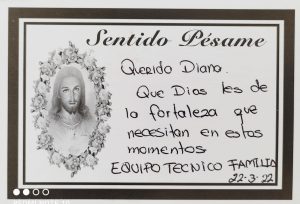 Sentido Pésame
Querido Diana.
Que Dios les de
la fortaleza que
necesitan en estos
momentos
EQUIPO TECNICO FAMILIA
22-3-22